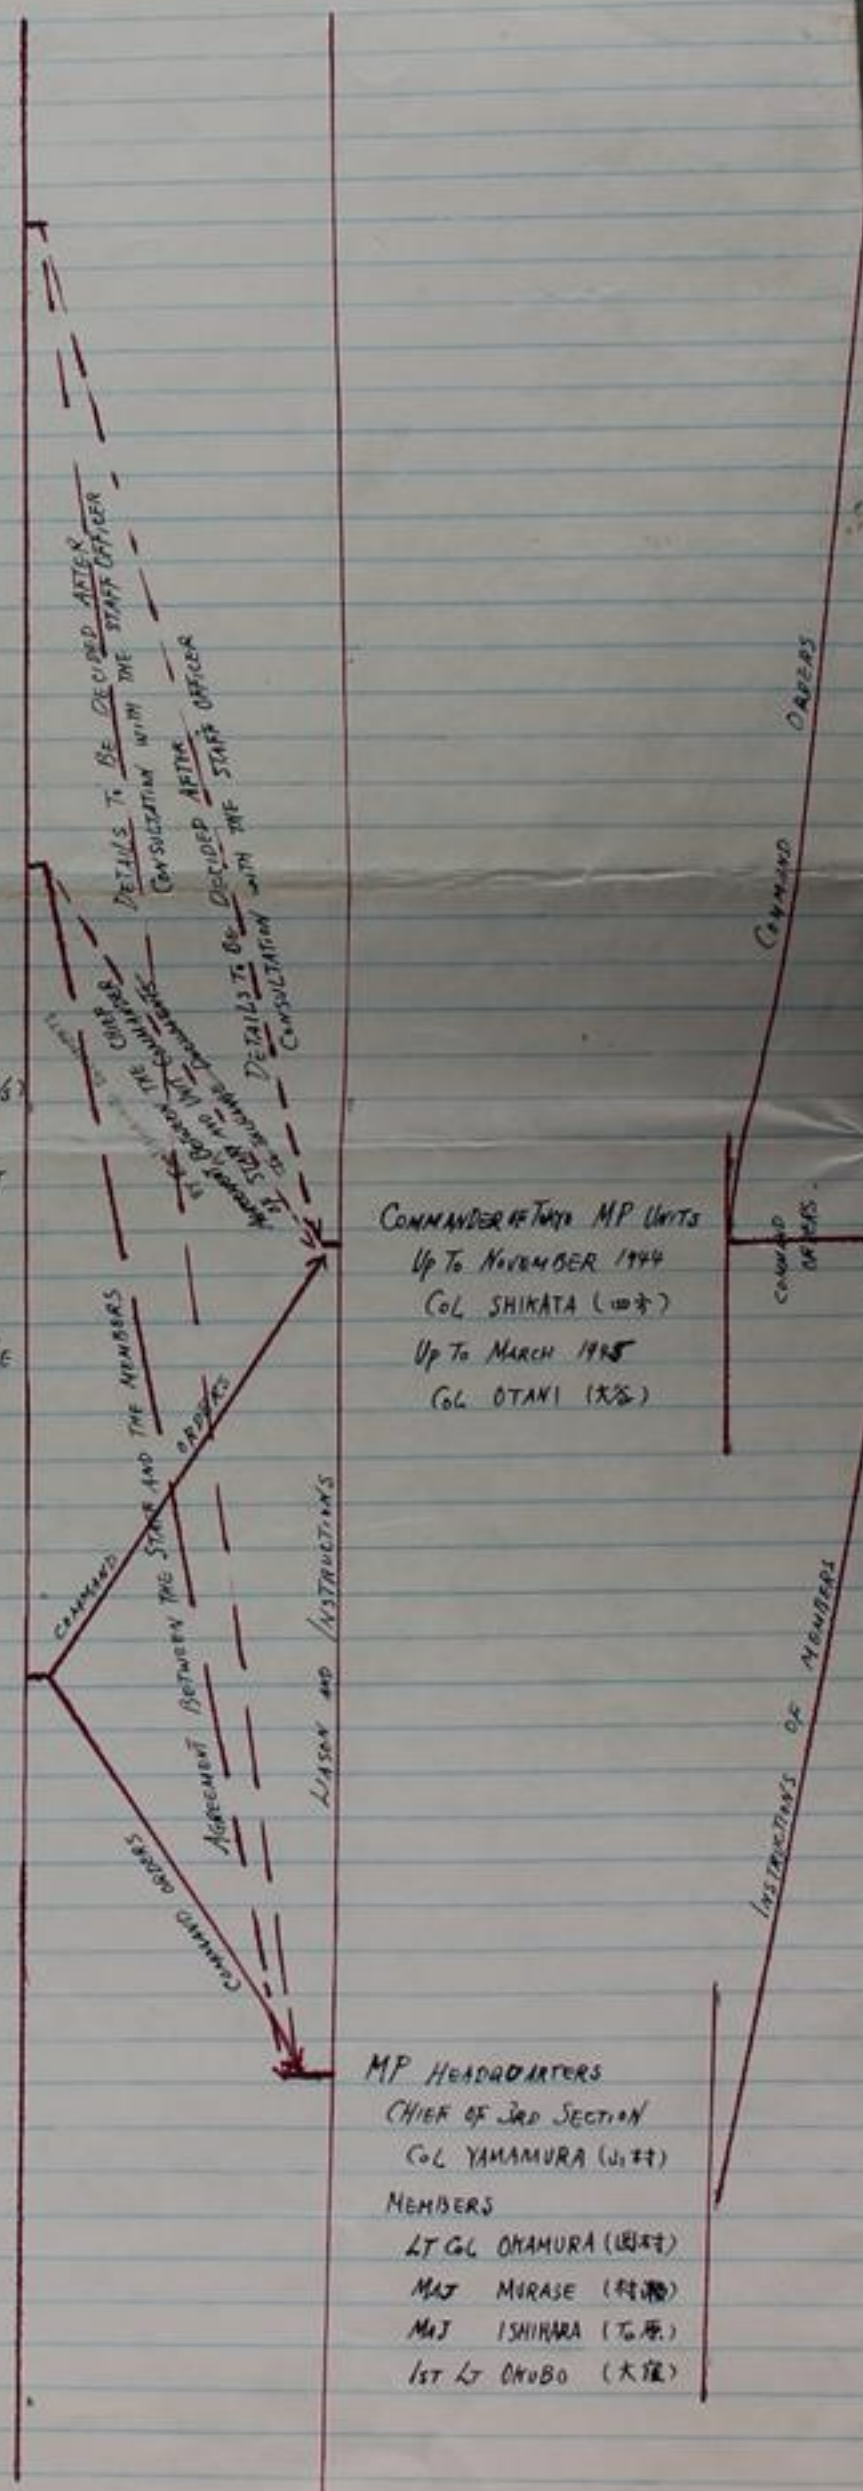 DETAILS TO BE DECIDED AFTER
CONSULTATION WITH THE STAFF OFFICER
DETAILS TO BE DECIDED AFTER
CONSULTATION WITH THE STAFF OFFICER
AGREEMENT BETWEEN THE CHIEF
OF STAFF AND UNIT COMMANDER
AGREEMENT BETWEEN THE STAFF AND THE MEMBERS
COMMAND ORDERS
COMMAND ORDERS
LIASON AND INSTRUCTIONS
COMMANDER OF TOKYO MP UNITS
UP TO NOVEMBER 1944
COL SHIKATA (四方)
UP TO MARCH 1945
COL OTANI (大谷)
COMMAND ORDERS
COMMAND
ORDERS.
INSTRUCTIONS OF MEMBERS
MP HEADQUARTERS
CHIEF OF 3RD SECTION
COL YAMAMURA (山村)
MEMBERS
LT COL OKAMURA (岡村)
MAJ MURASE (村瀬)
MAJ ISHIHARA (石原)
1ST LT OKUBO (大窪)